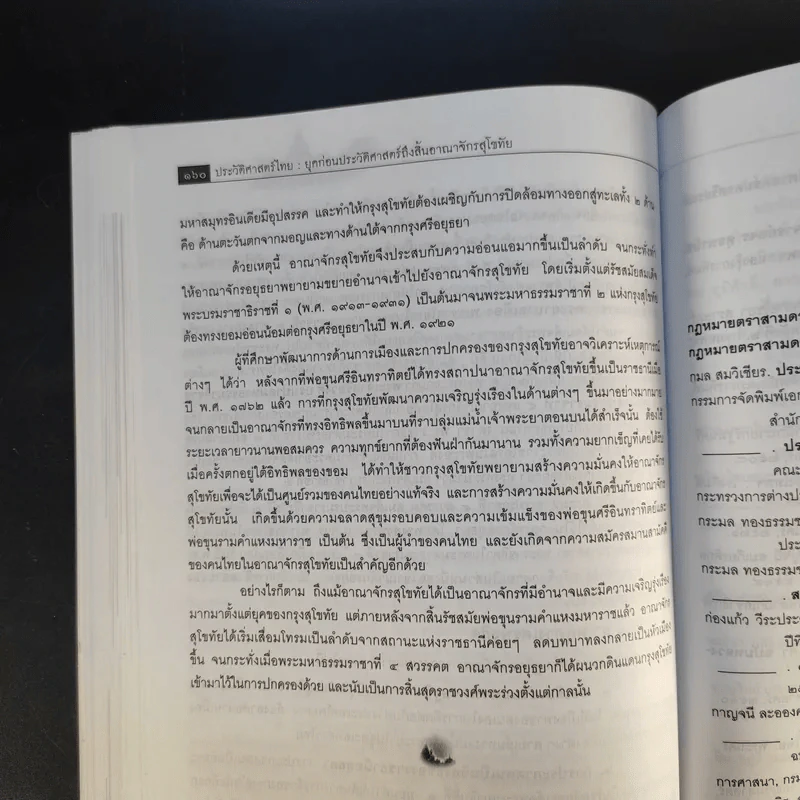 ๑๖๐ ประวัติศาสตร์ไทย : ยุคก่อนประวัติศาสตร์ถึงสิ้นอาณาจักรสุโขทัย
มหาสมุทรอินเดียมีอุปสรรค และทำให้กรุงสุโขทัยต้องเผชิญกับการปิดล้อมทางออกสู่ทะเลทั้ง ๒ ด้าน
คือ ด้านตะวันตกจากมอญและทางด้านใต้จากกรุงศรีอยุธยา
ด้วยเหตุนี้ อาณาจักรสุโขทัยจึงประสบกับความอ่อนแอมากขึ้นเป็นลำดับ จนกระทั่งทำ
ให้อาณาจักรอยุธยาพยายามขยายอำนาจเข้าไปยังอาณาจักรสุโขทัย โดยเริ่มตั้งแต่รัชสมัยสมเด็จ
พระบรมราชาธิราชที่ ๑ (พ.ศ. ๑๙๑๓-๑๙๓๑) เป็นต้นมาจนพระมหาธรรมราชาที่ ๒ แห่งกรุงสุโขทัย
ต้องทรงยอมอ่อนน้อมต่อกรุงศรีอยุธยาในปี พ.ศ. ๑๙๒๑
ผู้ที่ศึกษาพัฒนาการด้านการเมืองและการปกครองของกรุงสุโขทัยอาจวิเคราะห์เหตุการณ์
ต่างๆ ได้ว่า หลังจากที่พ่อขุนศรีอินทราทิตย์ได้ทรงสถาปนาอาณาจักรสุโขทัยขึ้นเป็นราชธานีเมื่อ
ปี พ.ศ. ๑๗๖๒ แล้ว การที่กรุงสุโขทัยพัฒนาความเจริญรุ่งเรืองในด้านต่างๆ ขึ้นมาอย่างมากมาย
จนกลายเป็นอาณาจักรที่ทรงอิทธิพลขึ้นมาบนที่ราบลุ่มแม่น้ำเจ้าพระยาตอนบนได้สำเร็จนั้น ต้องใช้
ระยะเวลายาวนานพอสมควร ความทุกข์ยากที่ต้องฟันฝ่ากันมานาน รวมทั้งความยากเข็ญที่เคยได้รับ
เมื่อครั้งตกอยู่ใต้อิทธิพลของขอม ได้ทำให้ชาวกรุงสุโขทัยพยายามสร้างความมั่นคงให้อาณาจักร
สุโขทัยเพื่อจะได้เป็นศูนย์รวมของคนไทยอย่างแท้จริง และการสร้างความมั่นคงให้เกิดขึ้นกับอาณาจักร
สุโขทัยนั้น เกิดขึ้นด้วยความฉลาดสุขุมรอบคอบและความเข้มแข็งของพ่อขุนศรีอินทราทิตย์และ
พ่อขุนรามคำแหงมหาราช เป็นต้น ซึ่งเป็นผู้นำของคนไทย และยังเกิดจากความสมัครสมานสามัคคี
ของคนไทยในอาณาจักรสุโขทัยเป็นสำคัญอีกด้วย
อย่างไรก็ตาม ถึงแม้อาณาจักรสุโขทัยได้เป็นอาณาจักรที่มีอำนาจและมีความเจริญรุ่งเรือง
มากมาตั้งแต่ยุคของกรุงสุโขทัย แต่ภายหลังจากสิ้นรัชสมัยพ่อขุนรามคำแหงมหาราชแล้ว อาณาจักร
สุโขทัยได้เริ่มเสื่อมโทรมเป็นลำดับจากสถานะแห่งราชธานีค่อยๆ ลดบทบาทลงกลายเป็นหัวเมือง
ขึ้น จนกระทั่งเมื่อพระมหาธรรมราชาที่ ๔ สวรรคต อาณาจักรอยุธยาก็ได้ผนวกดินแดนกรุงสุโขทัย
เข้ามาไว้ในการปกครองด้วย และนับเป็นการสิ้นสุดราชวงศ์พระร่วงตั้งแต่กาลนั้น
กฎหมายตราสามดว
กฎหมายตราสามด
กมล สมวิเชียร. ประ
กรรมการจัดพิมพ์เอก
สำนัก
. ปร
คณะ
กระทรวงการต่างป
กระมล ทองธรรมช
ประ
กระมล ทองธรรมช
. ส
ก่องแก้ว วีระประ
ปีที่
กาญจนี ละออง
การศาสนา, กรม